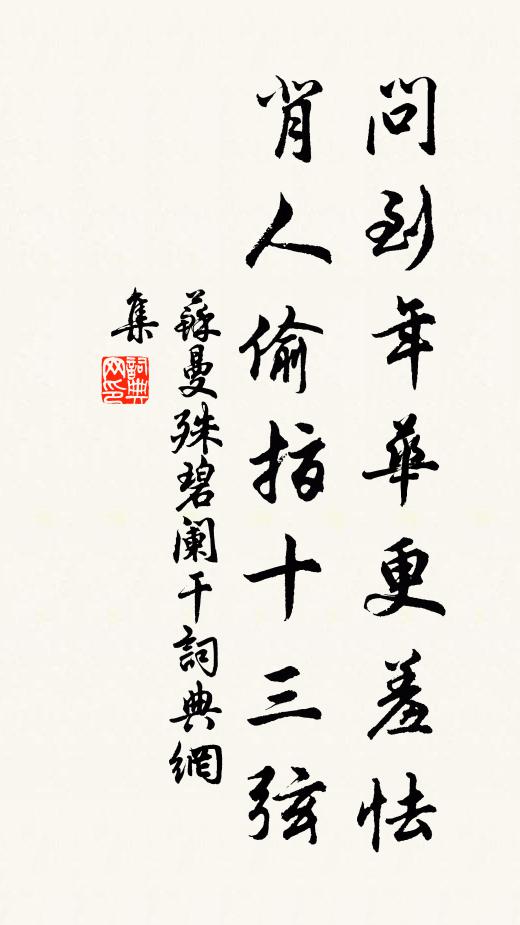 問到年華更羞怯
背人偷指十三弦
蘇曼殊碧闌干詞典網
集
詞典
网印